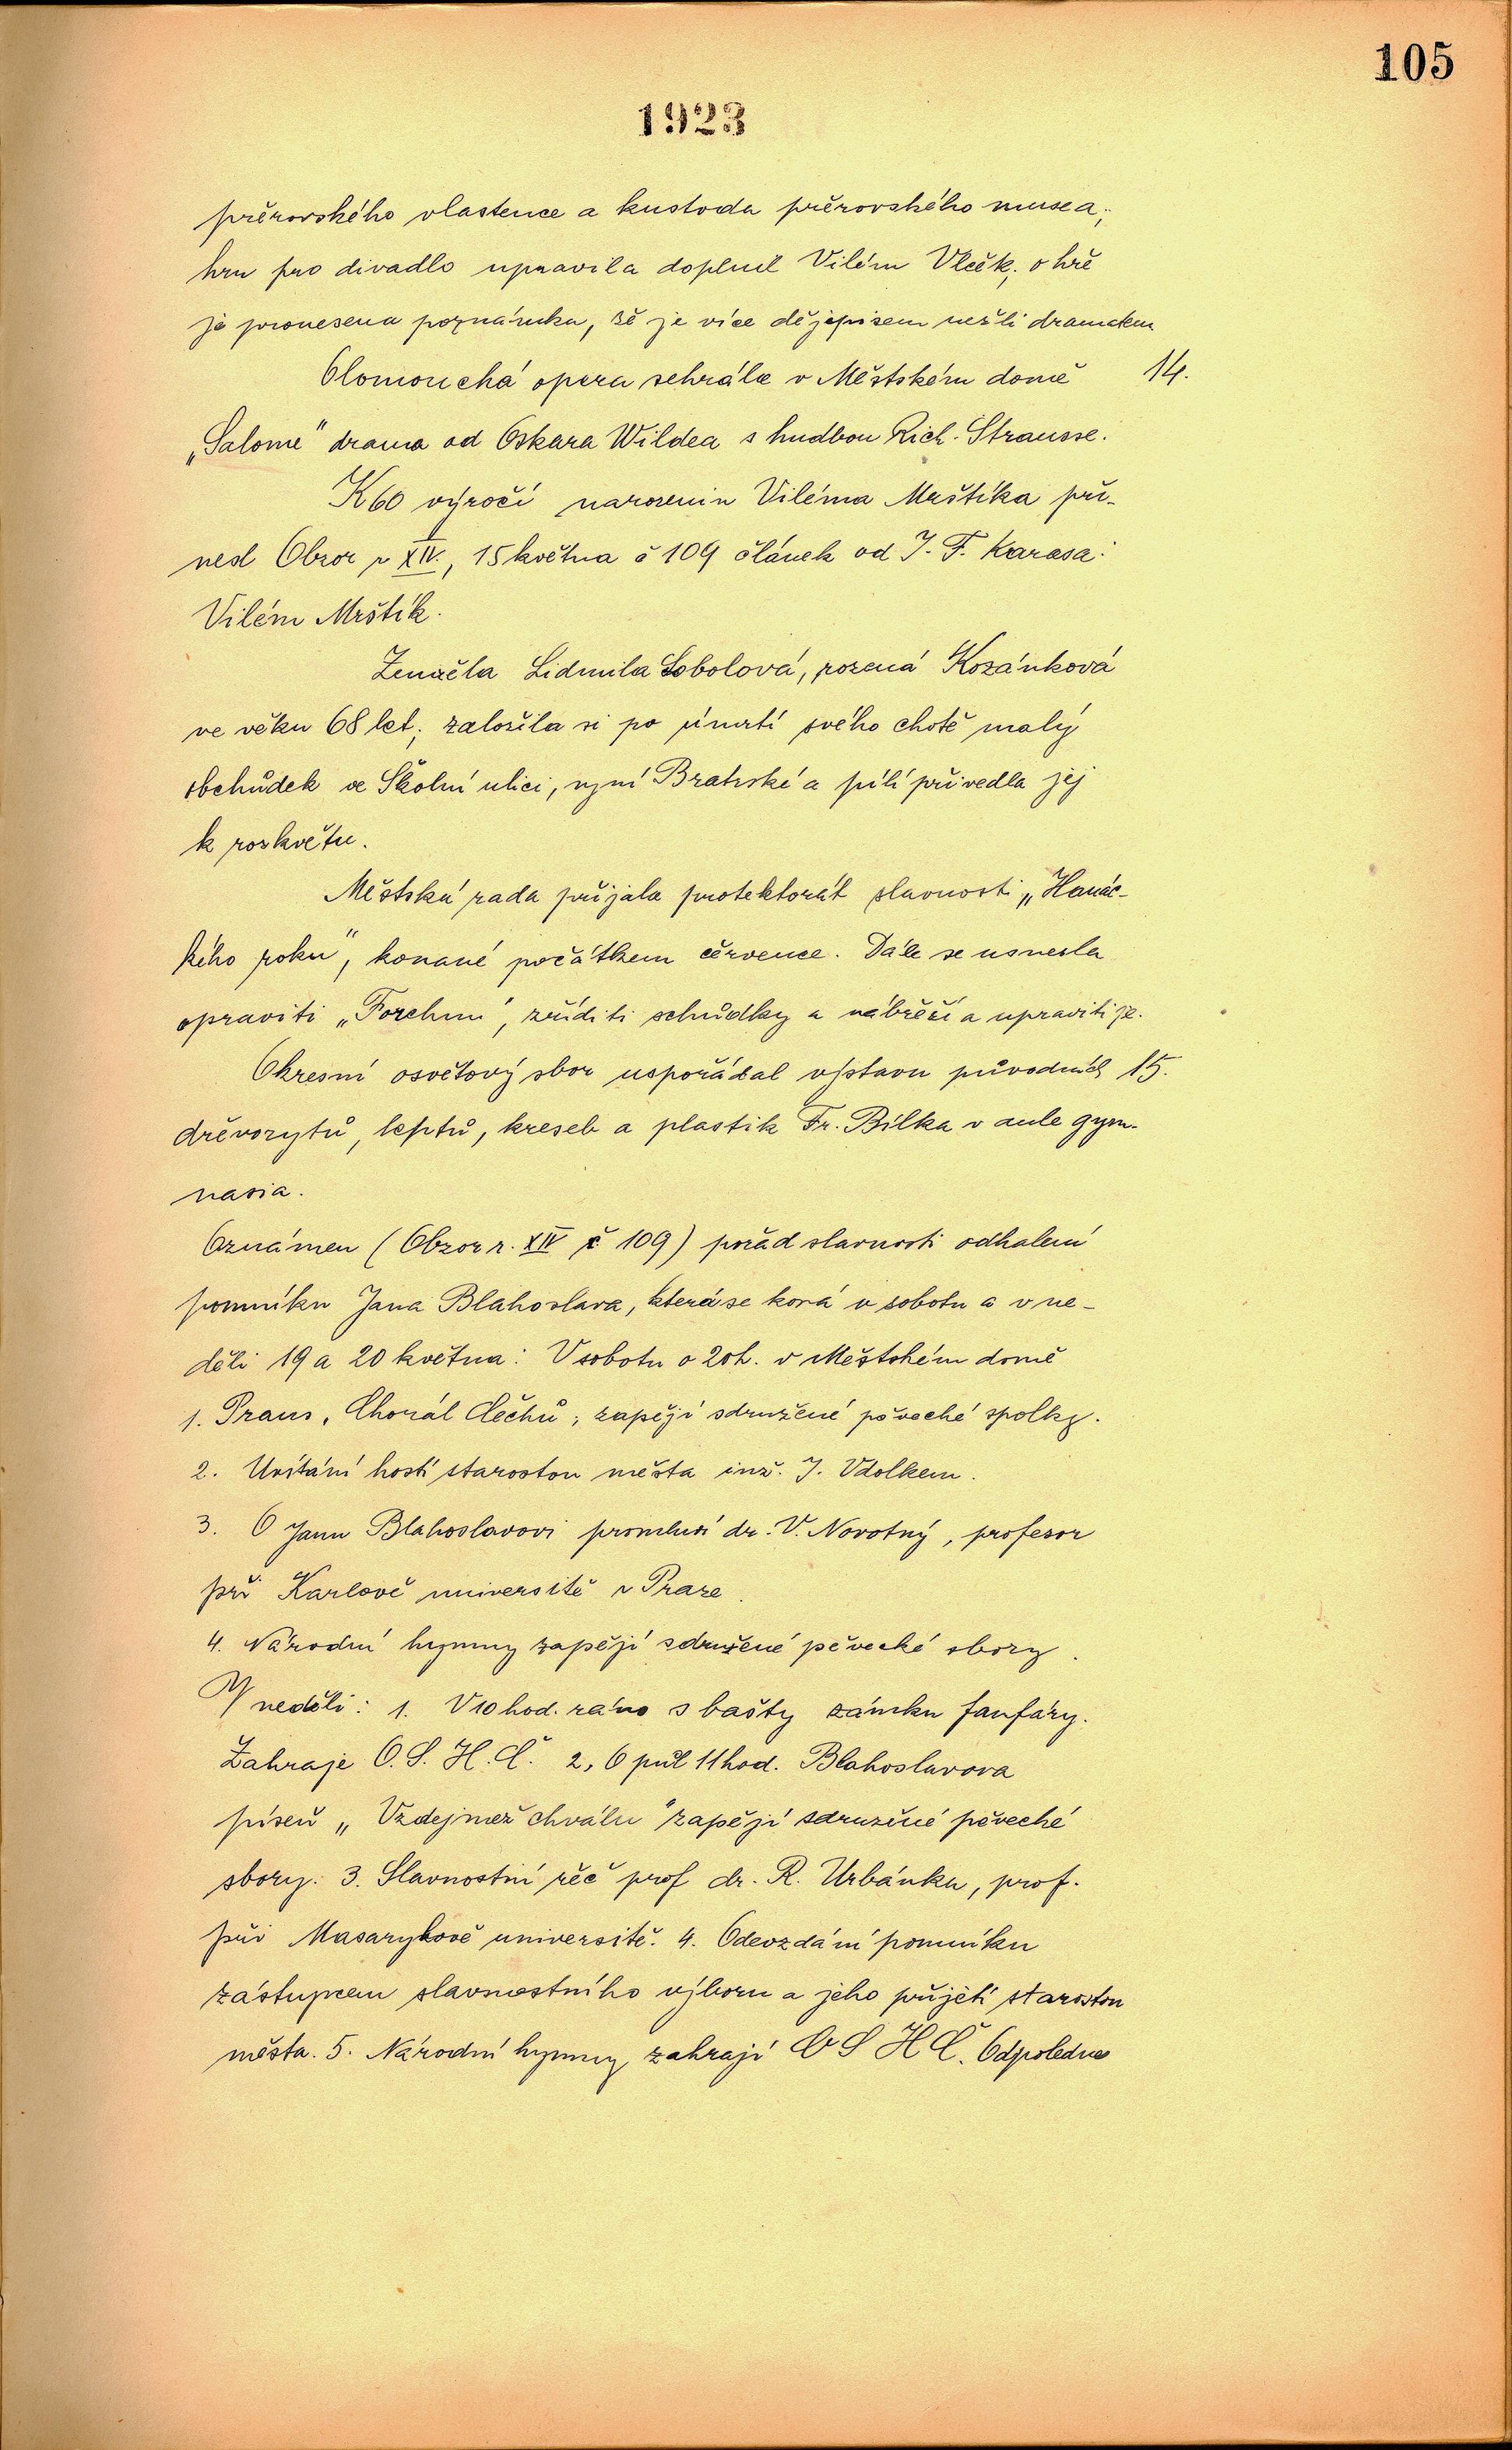 105
1923
přerovského vlastence a kustoda přerovského musea;
hru pro divadlo upravil a doplnil Vilém Vlček; o hře
je pronesena poznámka, že je více dějepisem nežli dramatem
Olomoucká opera sehrála v Městském domě 14.
„Salome" drama od Oskara Wildea s hudbou Rich. Strausse.
K 60 výročí narozenin Viléma Mrštíka při-
nesl Obzor r XIV., 15 května č 109 článek od J. F. Karasa:
Vilém Mrštík.
Zemřela Lidmila Sobolová, rozená Kozánková
ve věku 68 let; založila si po úmrtí svého chotě malý
obchůdek ve Školní ulici, nyní Bratrské a pílí přivedla jej
k rozkvětu.
Městská rada přijala protektorát slavnosti „Hanác-
kého roku", konané počátkem července. Dále se usnesla
opraviti „Forchnu", zříditi schůdky a nábřeží a upraviti je.
Okresní osvětový sbor uspořádal výstavu původních 15.
dřevorytů, leptů, kreseb a plastik Fr. Bílka v aule gym-
nasia.
Oznámen (Obzor r. XIV č 109) pořad slavnosti odhalení
pomníku Jana Blahoslava, která se koná v sobotu a v ne-
děli 19 a 20 května: V sobotu o 20h. v Městském domě
1. Praus, Chorál Čechů; zapějí sdružené pěvecké spolky.
2. Uvítání hostí starostou města inž. J. Vdolkem.
3. O Janu Blahoslavovi promluví dr. V. Novotný, profesor
při Karlově universitě v Praze.
4. Národní hymny zapějí sdružené pěvecké sbory.
V neděli: 1. V 10 hod. ráno s bašty zámku fanfáry.
Zahraje O. S. H. Č. 2, O půl 11 hod. Blahoslavova
píseň „Vzdejmež chválu" zapějí sdružené pěvecké
sbory. 3. Slavnostní řeč prof dr. R. Urbánka, prof.
při Masarykově universitě. 4. Odevzdání pomníku
zástupcem slavnostního výboru a jeho přijetí starostou
města. 5. Národní hymny zahrají O S H Č. Odpoledne